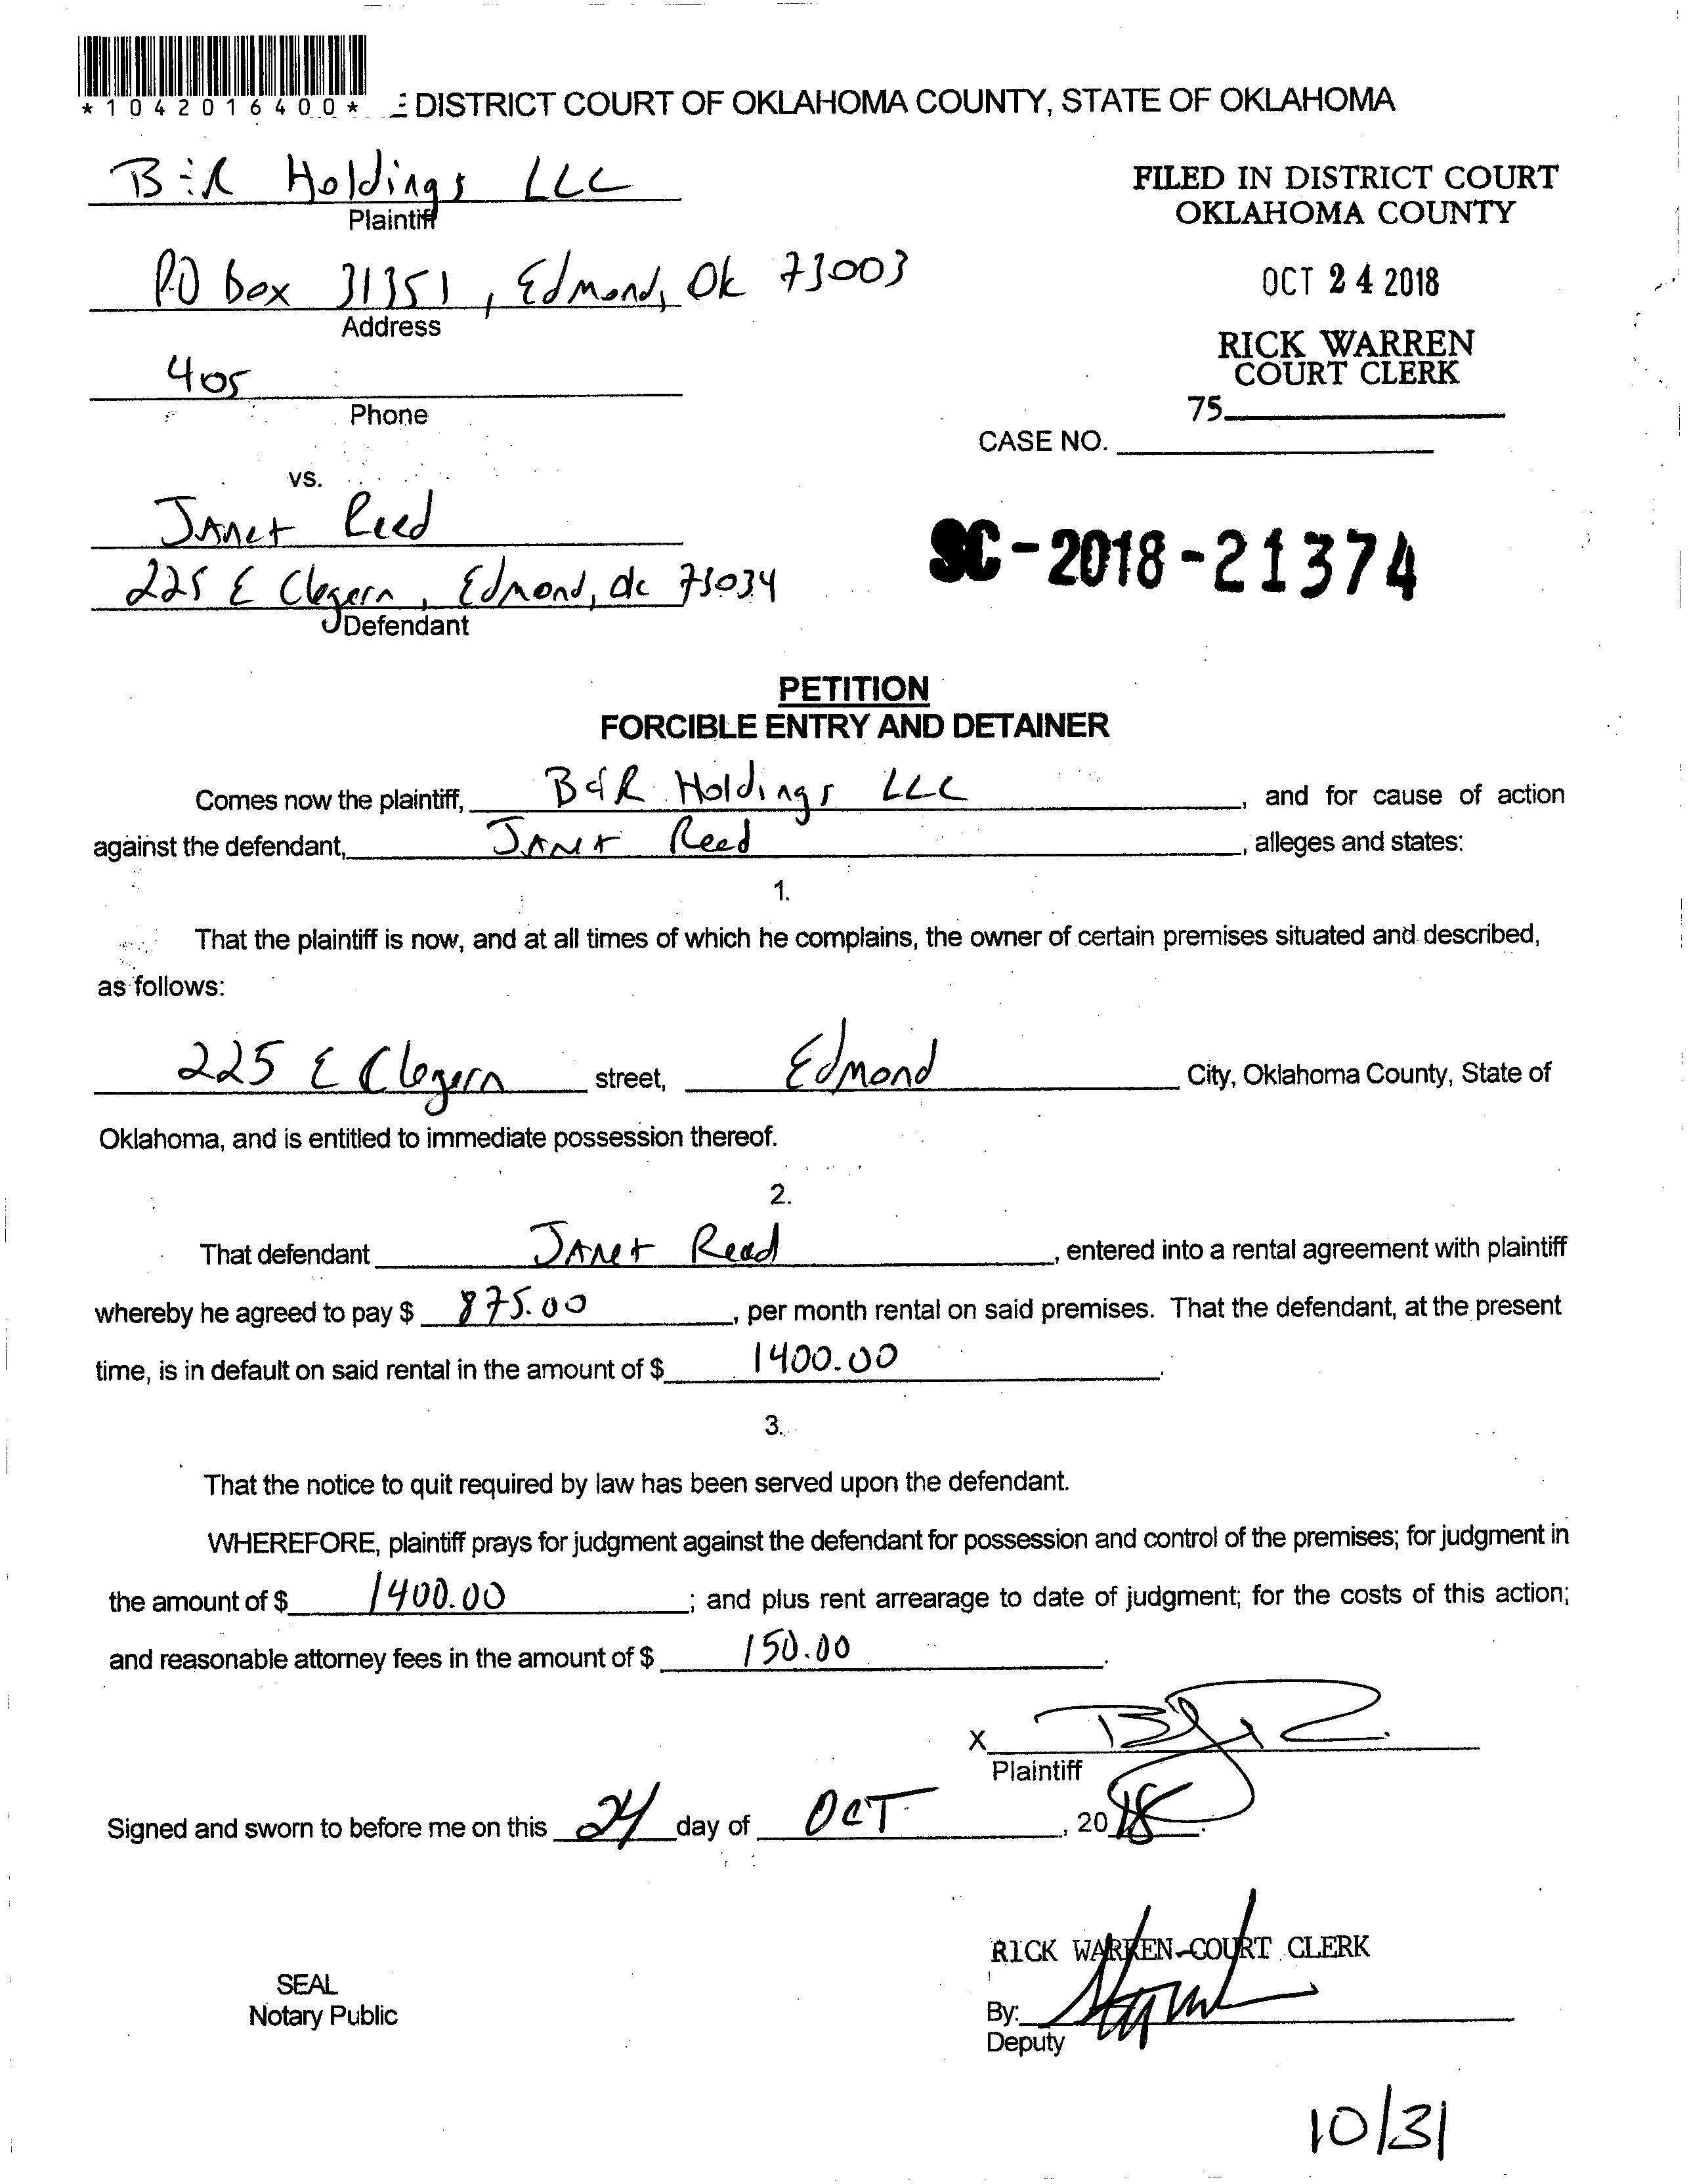 *1042016400*
DISTRICT COURT OF OKLAHOMA COUNTY, STATE OF OKLAHOMA
B&R Holdings LLC
Plaintiff
PO box 31351, Edmond, Ok 73003
Address
405
Phone
FILED IN DISTRICT COURT
OKLAHOMA COUNTY
OCT 24 2018
RICK WARREN
COURT CLERK
75
CASE NO.
vs.
Janet Reed
225 E Clegern, Edmond, Ok 73034
Defendant
SC-2018-21374
PETITION
FORCIBLE ENTRY AND DETAINER
Comes now the plaintiff, B&R Holdings LLC, and for cause of action
against the defendant, Janet Reed, alleges and states:
1.
That the plaintiff is now, and at all times of which he complains, the owner of certain premises situated and described,
as follows:
225 E Clegern street, Edmond City, Oklahoma County, State of
Oklahoma, and is entitled to immediate possession thereof.
2.
That defendant Janet Reed, entered into a rental agreement with plaintiff
whereby he agreed to pay $ 875.00, per month rental on said premises. That the defendant, at the present
time, is in default on said rental in the amount of $ 1400.00.
3.
That the notice to quit required by law has been served upon the defendant.
WHEREFORE, plaintiff prays for judgment against the defendant for possession and control of the premises; for judgment in
the amount of $ 1400.00; and plus rent arrearage to date of judgment; for the costs of this action;
and reasonable attorney fees in the amount of $ 150.00.
X
Plaintiff
Signed and sworn to before me on this 24 day of OCT, 2018.
RICK WARREN-COURT CLERK
SEAL
Notary Public
By:
Deputy
10/31